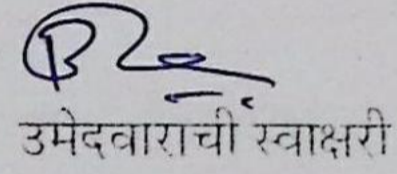 उमेदवाराची स्वाक्षरी